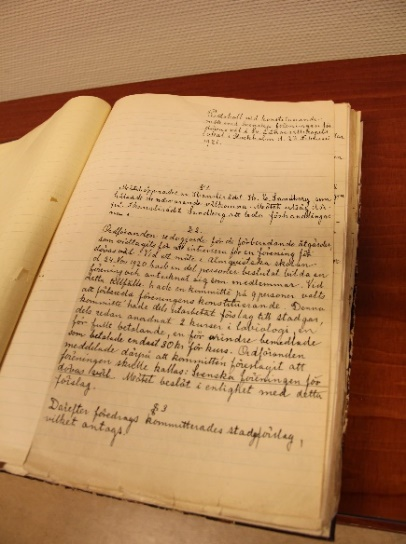 Protokoll vid konstituerande
möte med Svenska föreningen för
dövas väl i Sv. Läkaresällskapets
lokal i Stockholm d. 27 februari
1921.
§1.
Mötet öppnades av Kansirådet Th. E. Sandberg som
hälsade de närvarande välkomna. Mötet utsåg
Sandberg att leda förhandlingar
na.
§2.
Ordföranden redogjorde för de förberedande åtgärder
som vidtagits för att intressera för en förening för
dövas väl. Vid ett möte i Almquistska skolan
d. 24 Nov. 1920 hade en del personer beslutat bilda en
förening och antecknat sig som medlemmar. Vid
detta tillfälle hade en kommitté på 9 personer valts
att förbereda föreningens konstituerande. Denna
kommitté hade dels utarbetat förslag till stadgar,
dels redan anordnat 2 kurser i labiologi, en
för fullt betalande, en för mindre bemedlade
som betalade endast 30 kr för kurs. Ordföranden
meddelade därpå att kommittén föreslagit att
föreningen skulle kallas: Svenska föreningen för
dövas väl. Mötet beslöt i enlighet med detta
förslag.
§3
Därefter föredrogs kommitterades stadgförslag,
vilket antags.